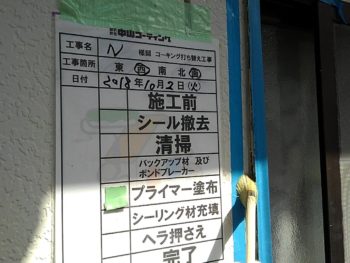 株式会社 中山コーティング
工事名 N 様邸 コーキング打ち替え工事
工事箇所 東 西 南 北 面
日付 2018年10月2日(火)
施工前
シール撤去
清掃
バックアップ材 及び
ボンドブレーカー
プライマー塗布
シーリング材充填
ヘラ押さえ
完了